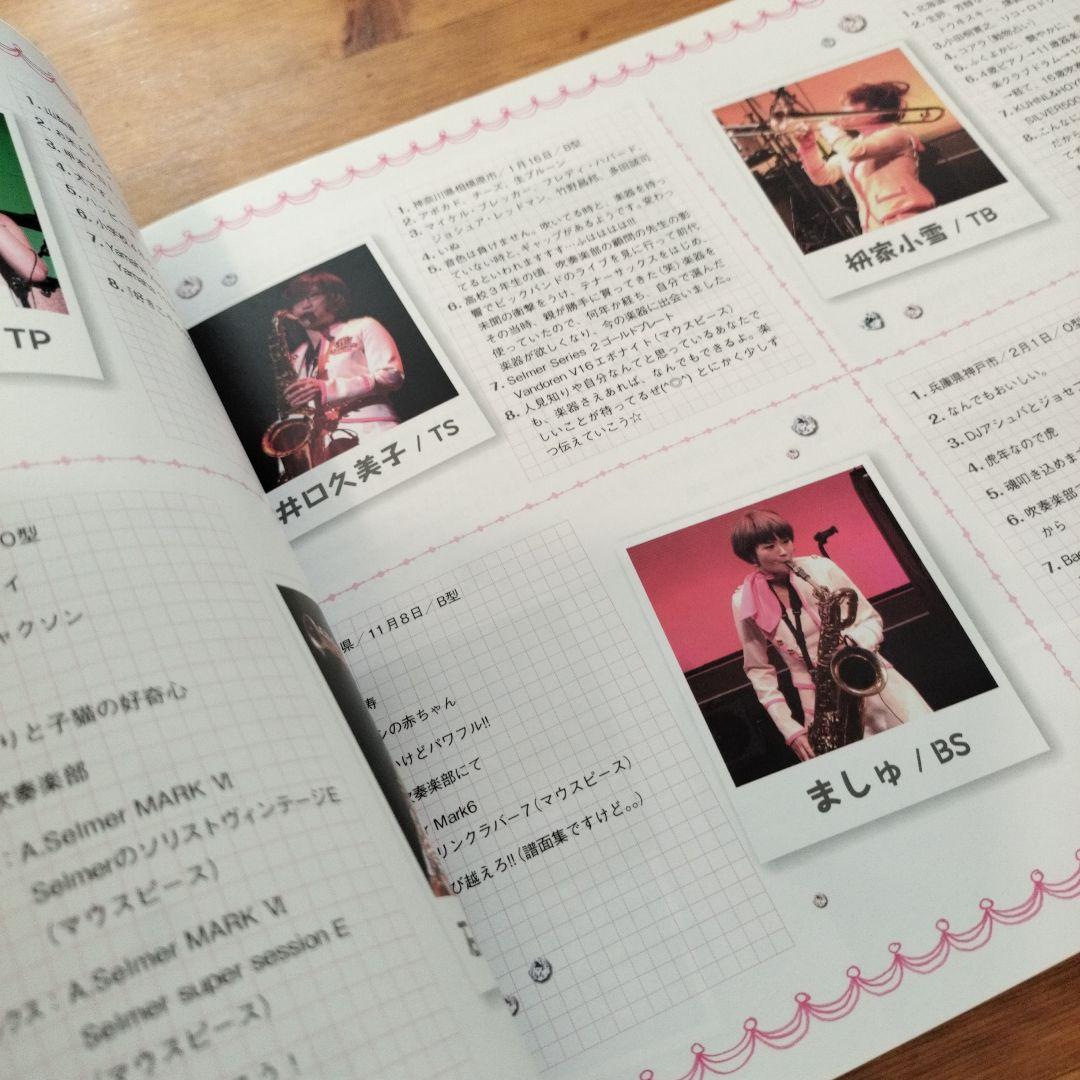 TP
O型
ィ
ャクソン
りと子猫の好奇心
吹奏楽部
：A.Selmer MARK Ⅵ
Selmerのソリストヴィンテージ E
(マウスピース)
クス：A.Selmer MARK Ⅵ
Selmer super session E
(マウスピース)
1. 神奈川県相模原市／1月16日／B型
2. アボカド、チーズ、生プルーン
3. マイケル・ブレッカー、フレディ・ハバード、
ジョシュア・レッドマン、竹野昌邦、多田誠司
4. いぬ
5. 音色は負けません。吹いてる時と、楽器を持っ
ていない時と、ギャップがあるようです。変わっ
てるといわれますす…ふはははは!!!
6. 高校3年生の頃、吹奏楽部の顧問の先生の影
響でビックバンドのライブを見に行って前代
未聞の衝撃をうけ、テナーサックスをはじめ、
その当時、親が勝手に買ってきた(笑)楽器を
使っていたので、何年か経ち、自分で選んだ
楽器が欲しくなり、今の楽器に出会いました。
7. Selmer Series 2 ゴールドプレート
Vandoren V16エボナイト(マウスピース)
8. 人見知りや自分なんてと思っているあなたで
も、楽器さえあれば、なんでもできるよ。楽
しいことが待ってるぜ(^◎^) とにかく少しず
つ伝えていこう☆
井口久美子 / TS
県／11月8日／B型
寿
シの赤ちゃん
いけどパワフル!!
吹奏楽部にて
Mark6
リンクラバー7(マウスピース)
び越えろ!!(譜面集ですけど。。)
ましゅ / BS
3. 小田桐寛之、リコ・ロドリ
4. コアラ(動物占い)
5. ふくよかに、艶やかに、
6. 4歳ピアノ→11歳器楽
楽クラブドラム→12
→経て、16歳吹
7. KUHNL&HOY
SILVER500
8. こんなに
だから
枡家小雪 / TB
1. 兵庫県神戸市／2月1日／O型
2. なんでもおいしい。
3. DJアシュバとジョセフ
4. 虎年なので虎
5. 魂叩き込めま
6. 吹奏楽部
から
7. Bac